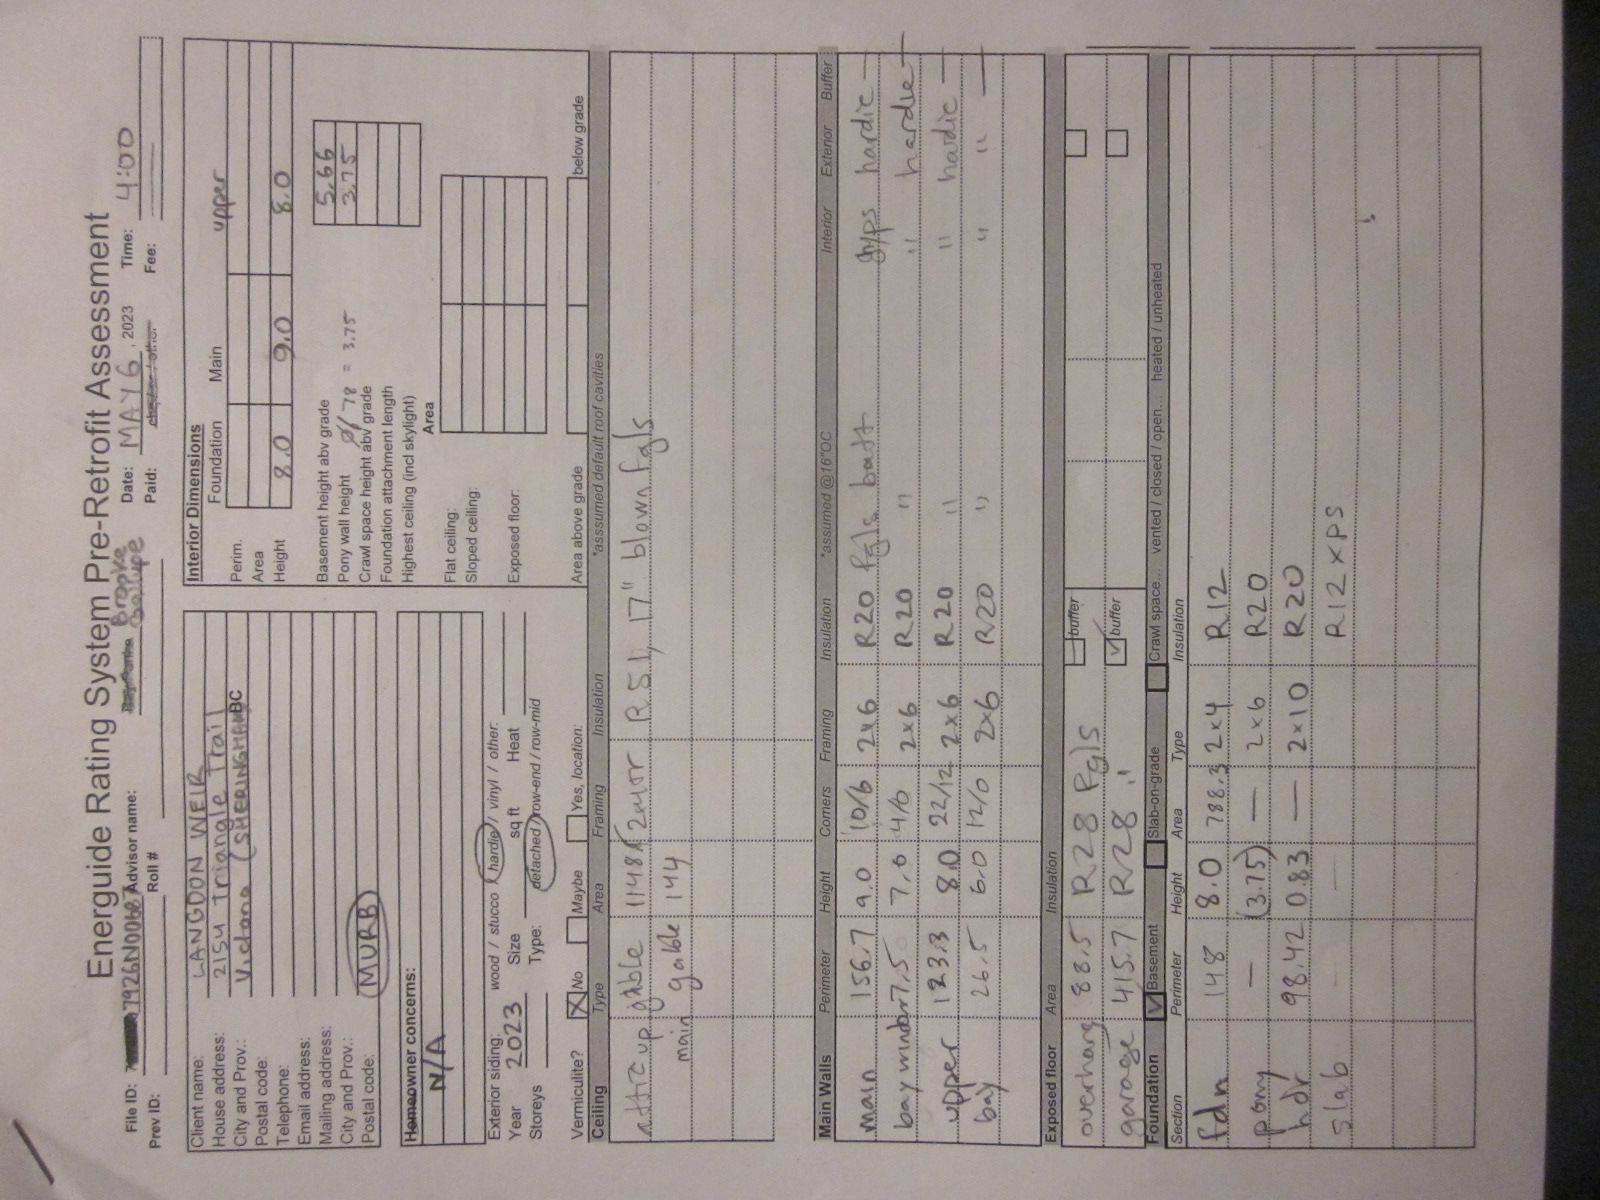 Energuide Rating System Pre-Retrofit Assessment
File ID: 7926N00687 Advisor name: Brooke Date: MAY 6, 2023 Time: 4:00
Prev ID: Roll # Paid: Fee:
Client name: LANGDON WEIR
House address: 2154 Triangle Trail
City and Prov.: Victoria (SHERINGHAM) BC
Postal code:
Telephone:
Email address:
Mailing address:
City and Prov.:
Postal code: MURB
Homeowner concerns:
N/A
Exterior siding: wood / stucco / hardie / vinyl / other:
Year 2023 Size sq ft Heat
Storeys Type: detached / row-end / row-mid
Interior Dimensions
Foundation Main upper
Perim.
Area
Height 8.0 9.0 8.0
Basement height abv grade 5.66
Pony wall height 3.75
Crawl space height abv grade
Foundation attachment length
Highest ceiling (incl skylight)
Area
Flat ceiling:
Sloped ceiling:
Exposed floor:
Vermiculite? No Maybe Yes, location: Area above grade below grade
Ceiling Type Area Framing Insulation *assumed default roof cavities
attic up gable 1148 2x4tr R51, 17" blown fgls
main gable 144
Main Walls Perimeter Height Corners Framing Insulation *assumed @16"OC Interior Exterior Buffer
main 156.7 9.0 10/6 2x6 R20 fgls batt gyps hardie —
bay window 7.5 7.0 4/0 2x6 R20 " " hardie —
upper 123.3 8.0 22/12 2x6 R20 " " hardie —
bay 26.5 6.0 12/0 2x6 R20 " " " —
Exposed floor Area Insulation
overhang 88.5 R28 fgls buffer
garage 415.7 R28 " buffer
Foundation Basement Slab-on-grade Crawl space... vented / closed / open... heated / unheated
Section Perimeter Height Area Type Insulation
fdn 148 8.0 788.3 2x4 R12
pony — (3.75) — 2x6 R20
hdr 98.42 0.83 — 2x10 R20
slab — R12 XPS